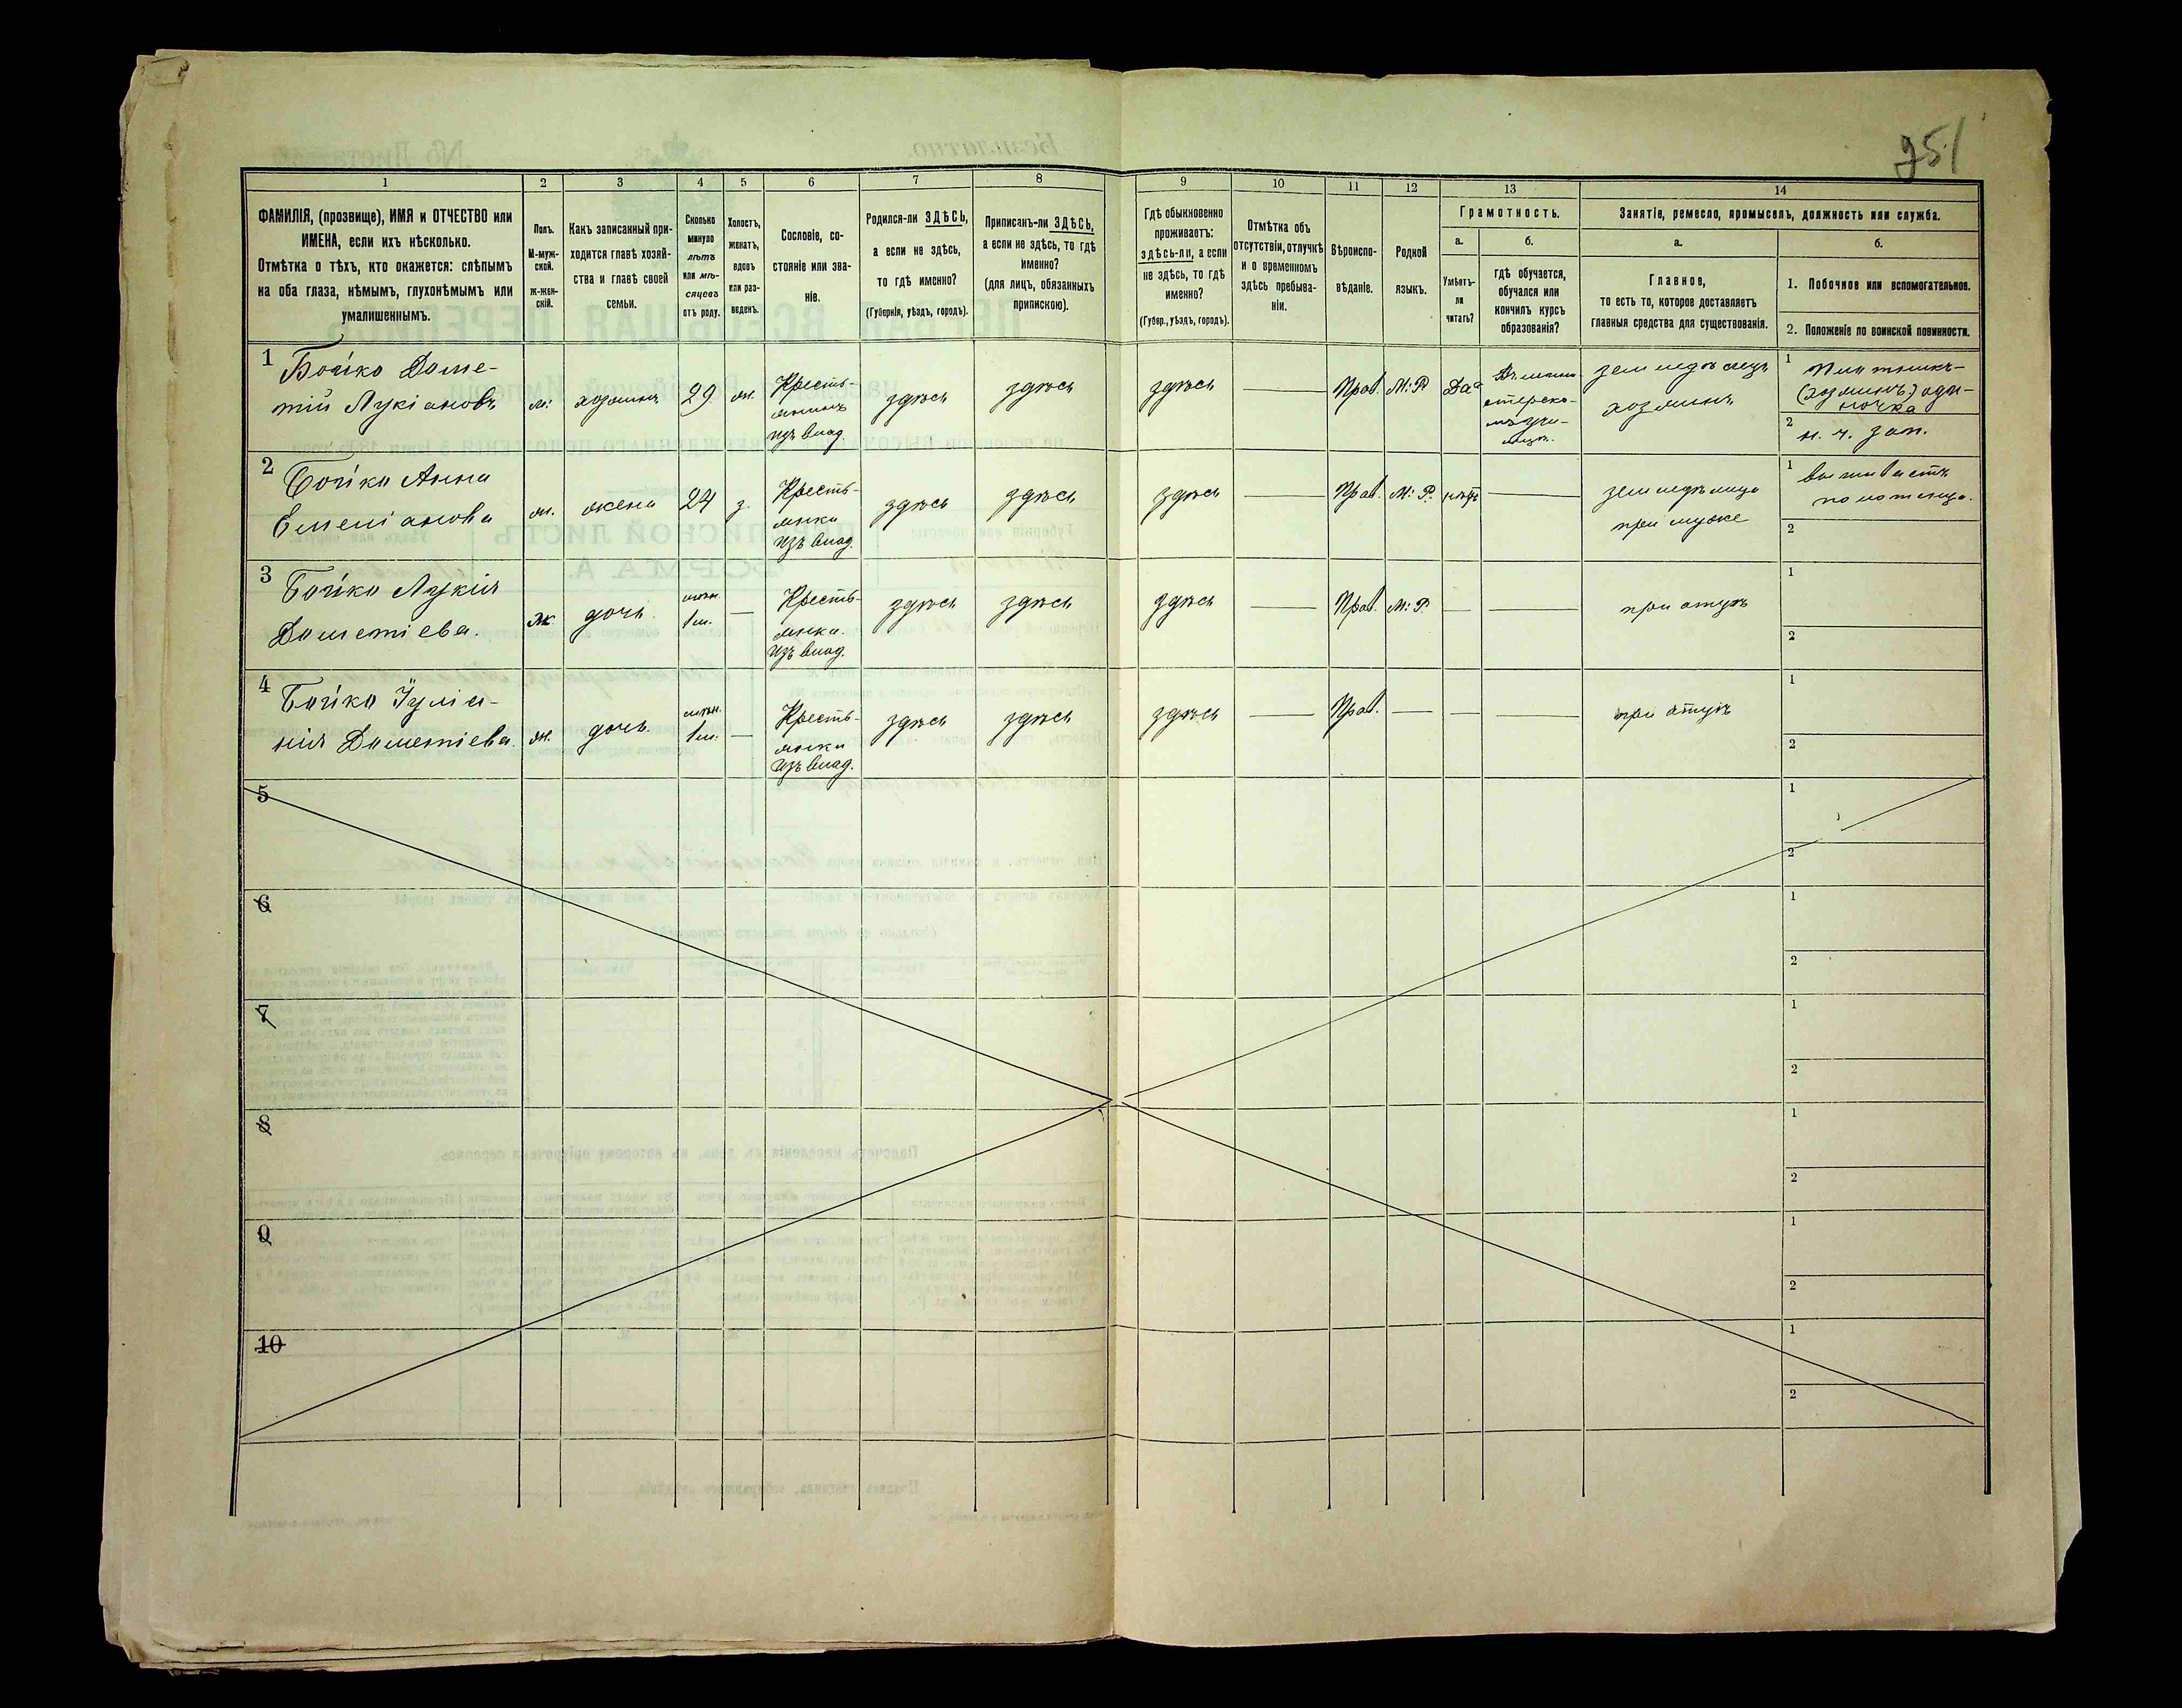 951
1 2 3 4 5 6 7 8 9 10 11 12 13 14
ФАМИЛІЯ, (прозвище), ИМЯ и ОТЧЕСТВО или
ИМЕНА, если ихъ нѣсколько.
Отмѣтка о тѣхъ, кто окажется: слѣпымъ
на оба глаза, нѣмымъ, глухонѣмымъ или
умалишеннымъ.
Полъ.
М-муж-
ской.
ж-жен-
скій.
Какъ записанный при-
ходится главѣ хозяй-
ства и главѣ своей
семьи.
Сколько
минуло
лѣтъ
или мѣ-
сяцевъ
отъ роду.
Холостъ,
женатъ,
вдовъ
или раз-
веденъ.
Сословіе, со-
стояніе или зва-
ніе.
Родился-ли ЗДѢСЬ,
а если не здѣсь,
то гдѣ именно?
(Губернія, уѣздъ, городъ).
Приписанъ-ли ЗДѢСЬ,
а если не здѣсь, то гдѣ
именно?
(для лицъ, обязанныхъ
припискою).
Гдѣ обыкновенно
проживаетъ:
здѣсь-ли, а если
не здѣсь, то гдѣ
именно?
(Губер., уѣздъ, городъ).
Отмѣтка объ
отсутствіи, отлучкѣ
и о временномъ
здѣсь пребыва-
ніи.
Вѣроиспо-
вѣданіе.
Родной
языкъ.
Грамотность.
а.
Умѣетъ-
ли
читать?
б.
гдѣ обучается,
обучался или
кончилъ курсъ
образованія?
Занятіе, ремесло, промыселъ, должность или служба.
а.
Главное,
то есть то, которое доставляетъ
главныя средства для существованія.
б.
1. Побочное или вспомогательное.
2. Положеніе по воинской повинности.
1
Бойко Доме-
тій Лукіановъ
м.
хозяинъ
29
ж.
Кресть-
янинъ
изъ влад.
здѣсь
здѣсь
здѣсь
—
Прав.
М: Р
Да
землѣдѣлецъ
хозяинъ
1
Плотникъ-
(хозяинъ) оди-
ночка
2
н. ч. зап.
2
Бойко Анна
Емеліанова
ж.
жена
24
з.
Кресть-
янка
изъ влад.
здѣсь
здѣсь
здѣсь
—
Прав.
М: Р.
нѣтъ
—
землѣдѣлица
при мужѣ
1
вышиваетъ
полотенца.
2
3
Бойко Лукія
Дометіева.
ж
дочь
1м.
—
Кресть-
янка.
изъ влад.
здѣсь
здѣсь
здѣсь
—
Прав.
М: Р
—
—
при отцѣ
1
2
4
Бойко Іулиа-
нія Дометіева.
ж.
дочь
1м.
—
Кресть-
янки
изъ влад.
здѣсь
здѣсь
здѣсь
—
Прав.
—
—
—
при отцѣ
1
2
5
1
2
6
1
2
7
1
2
8
1
2
9
1
2
10
1
2